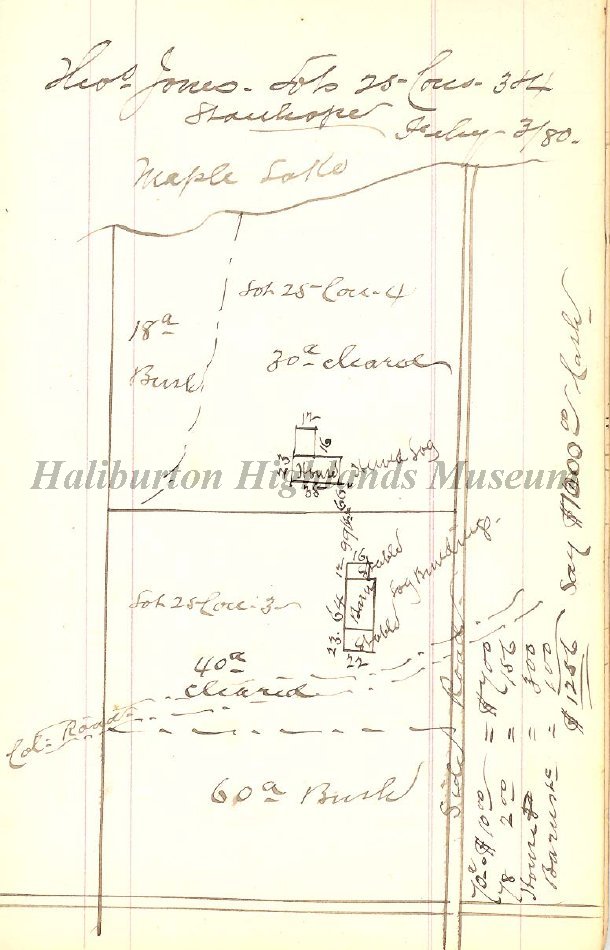 Thos Jones - Lots 25 - Cons - 3 & 4
Stanhope
Feby - 3/80 -
Maple Lake
Lot 25 - Con - 4
18a
Bush
30a cleared
12
16
23
House
Hewed Log
Haliburton Highlands Museum
66
99 ft
12
16
Stable
Log Buildings.
Barn
64
Stable
23
22
Lot 25 - Con - 3 -
40a
cleared
Col - Road -
60a Bush
Side Road
70a - $10 00 = $700
78 2 00 = 156
House = 300
Barn &c = 100
$1256
Say $1000 00 Cash